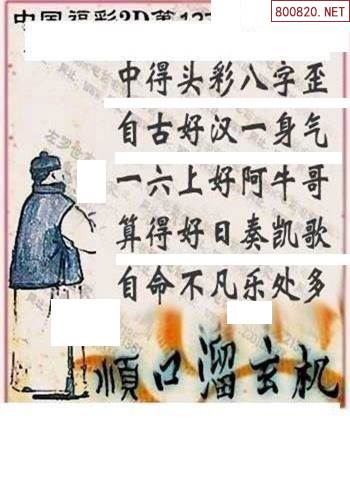 800820.NET
中国福彩3D第127
中得头彩八字歪
自古好汉一身气
一六上好阿牛哥
算得好日奏凯歌
自命不凡乐处多
順口溜玄机